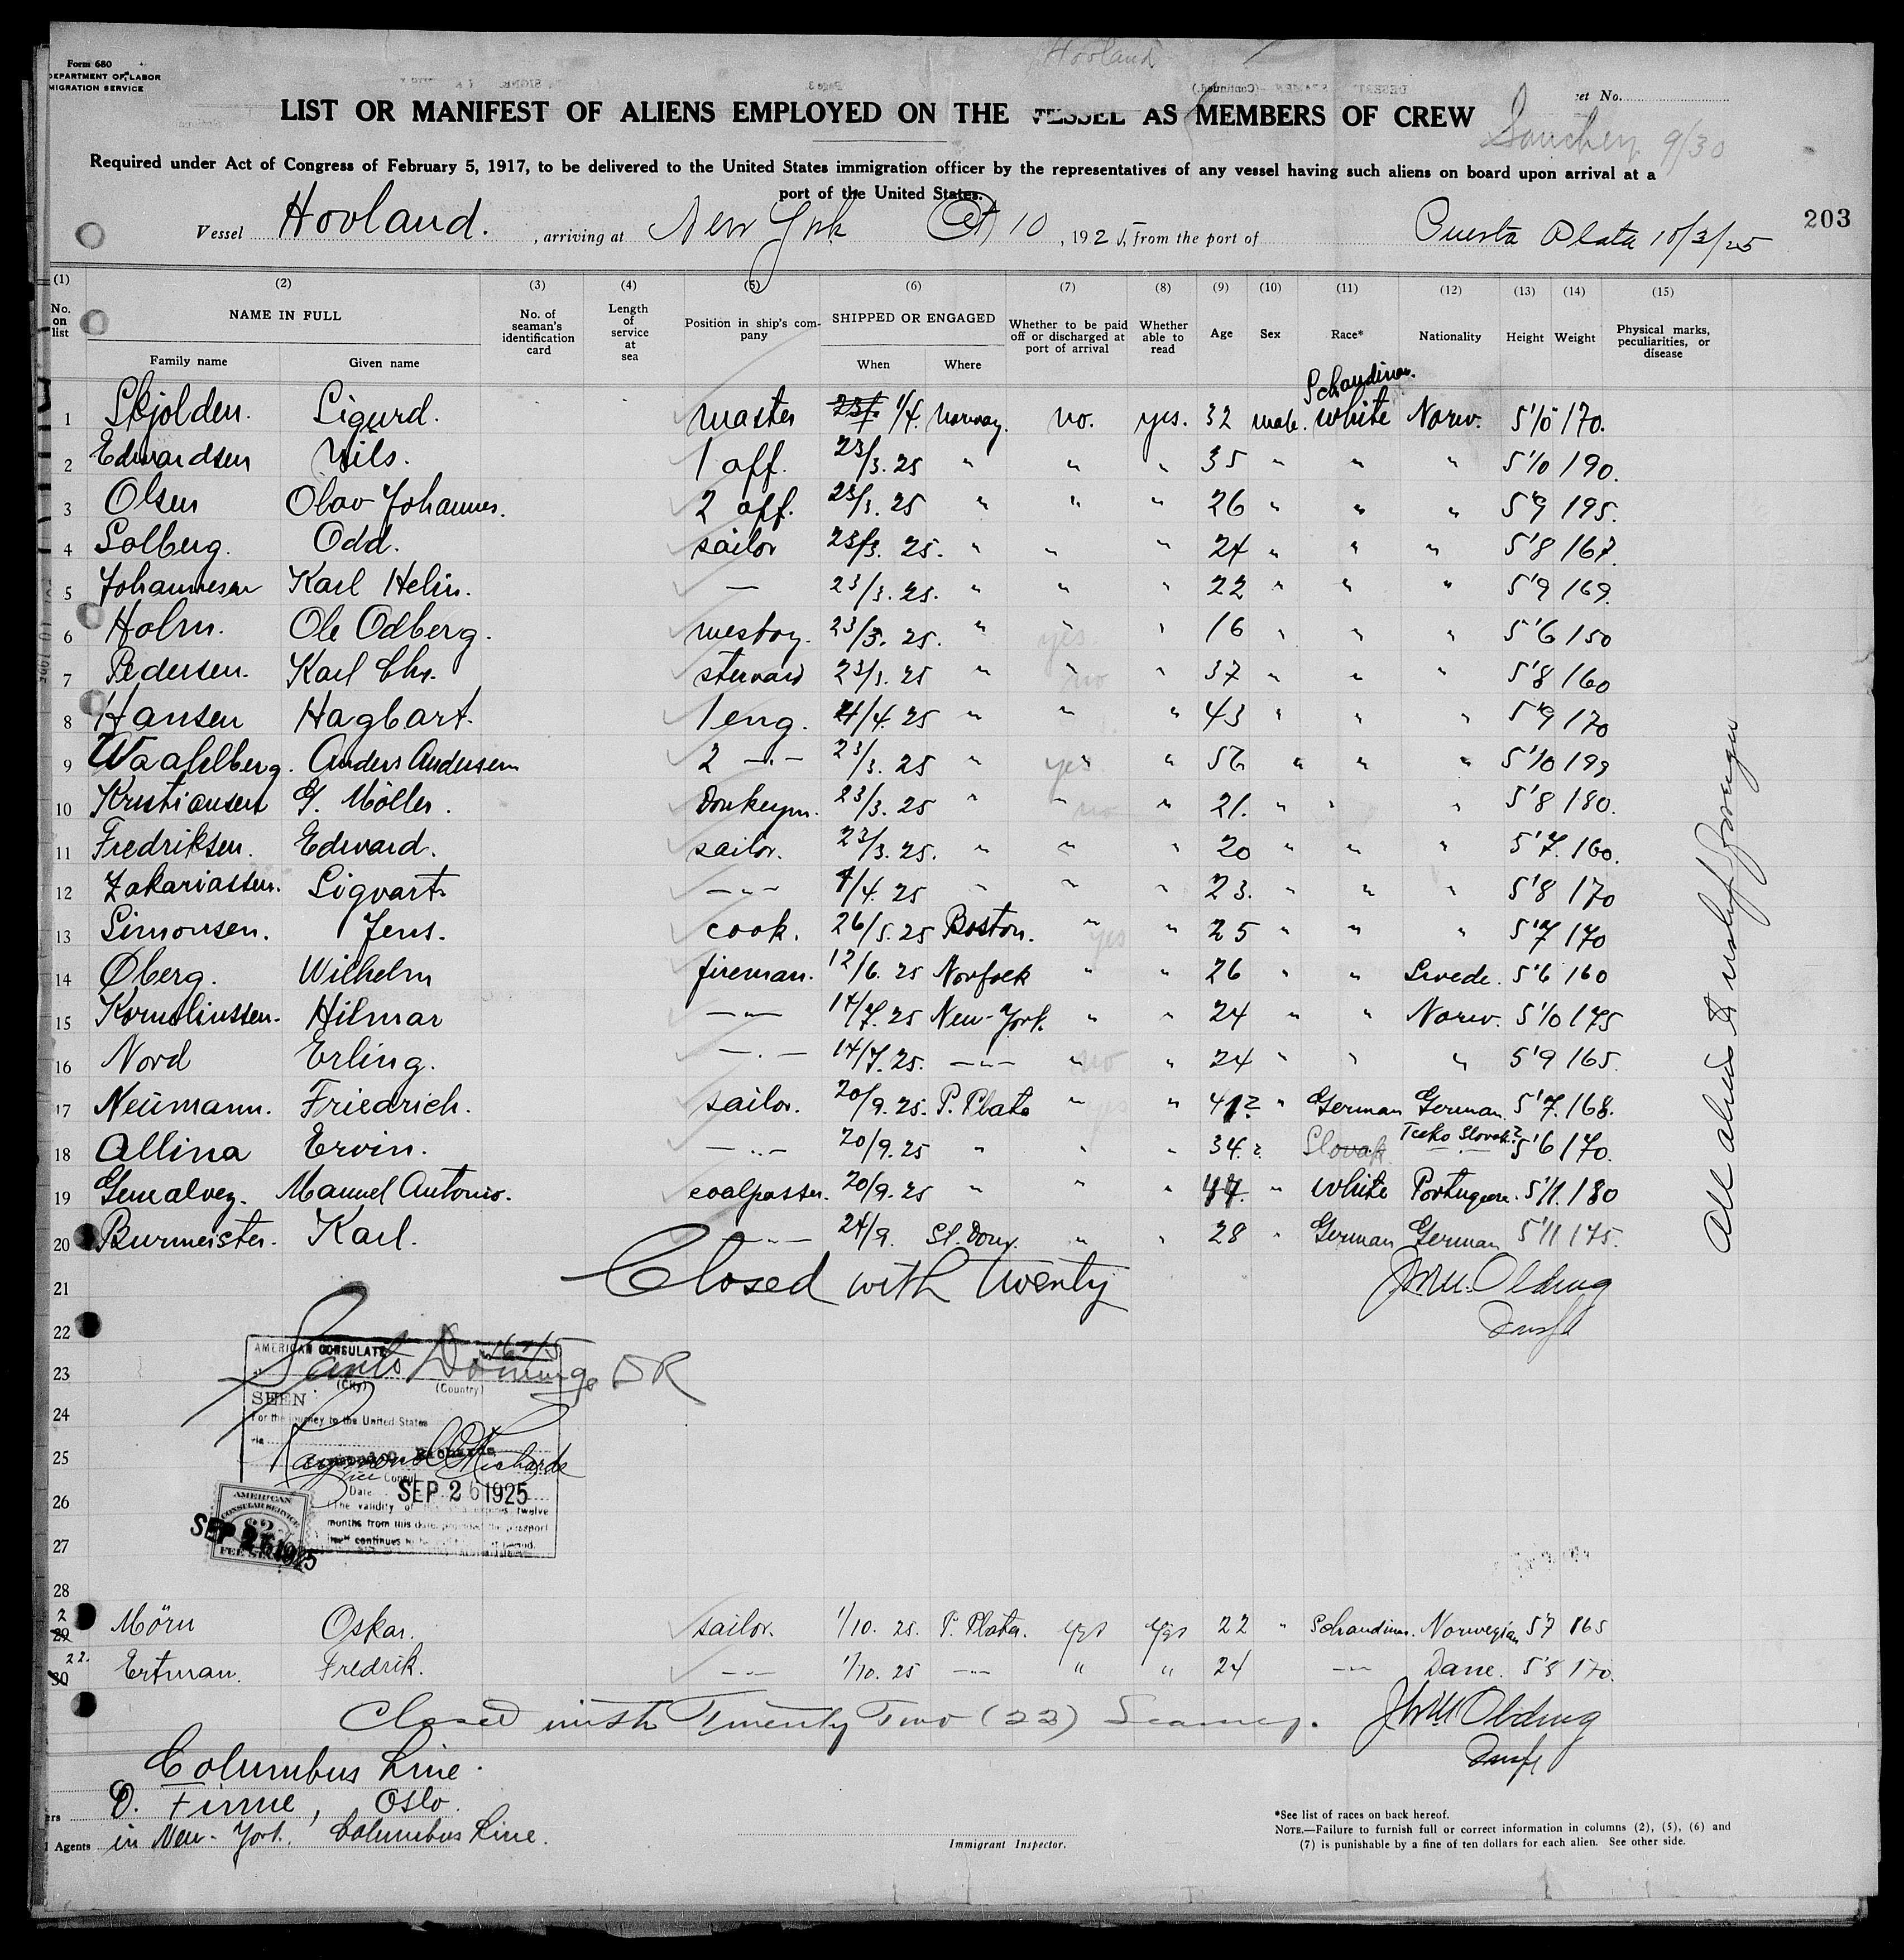 Form 680
DEPARTMENT OF LABOR
MIGRATION SERVICE
Hovland
LIST OR MANIFEST OF ALIENS EMPLOYED ON THE VESSEL AS MEMBERS OF CREW
Sanchez 9/30
Required under Act of Congress of February 5, 1917, to be delivered to the United States immigration officer by the representatives of any vessel having such aliens on board upon arrival at a
port of the United States.
Vessel Hovland. , arriving at New York Oct 10 , 1925, from the port of Puerto Plata 10/3/25
203
(1) (2) (3) (4) (5) (6) (7) (8) (9) (10) (11) (12) (13) (14) (15)
No. on list NAME IN FULL No. of seaman's identification card Length of service at sea Position in ship's company SHIPPED OR ENGAGED Whether to be paid off or discharged at port of arrival Whether able to read Age Sex Race* Nationality Height Weight Physical marks, peculiarities, or disease
Family name Given name When Where
1 Skjolden. Sigurd. master 1/4. Norway. no. yes. 32 male. Schandinav. white Norw. 5'10 170.
2 Edwardsen Nils. 1 off. 23/3. 25 " " " 35 " " " 5'10 190.
3 Olsen Olav Johannes. 2 off. 23/3. 25 " " " 26 " " " 5'9 195.
4 Solberg. Odd. sailor 23/3. 25. " " " 24 " " " 5'8 167.
5 Johannesen Karl Helin. — 23/3. 25. " " " 22 " " " 5'9 169.
6 Holm. Ole Odberg. messboy. 23/3. 25. " yes " 16 " " " 5'6 150
7 Pedersen. Karl Chr. stervard 23/3. 25 " " no " 37 " " " 5'8 160
8 Hansen Hagbart. 1 eng. 4/4. 25 " " " 43 " " " 5'9 170
9 Waahlberg. Anders Andersen 2 -"- 23/3. 25 " yes " 56 " " " 5'10 199
10 Kristiansen G. Möller. Donkeym. 23/3. 25 " " no " 21. " " " 5'8 180.
11 Fredriksen. Edward. sailor. 23/3. 25. " " " 20 " " " 5'7. 160.
12 Zakariassen. Sigvart. -"- 4/4. 25 " " " 23. " " " 5'8 170
13 Simonsen. Jens. cook. 26/5. 25 Boston. " yes " 25 " " " 5'7 170
14 Øberg. Wilhelm fireman. 12/6. 25 Norfolk " " 26 " " Swede. 5'6 160
15 Korneliussen. Hilmar -"- 14/7. 25 New-York. " " 24 " " Norw. 5'10 175
16 Nord Erling. -"- 14/7. 25. -"- " no " 24 " " " 5'9 165
17 Neümann. Friedrich. sailor. 20/9. 25. P. Plata " yes " 41? " German German. 5'7. 168.
18 Allina Ervin. -"- 20/9. 25 " " " 34.? Slovak Tseko Slovak? 5'6 170.
19 Gencalvez. Manuel Antonio. coalpasser. 20/9. 25 " " " 47. " white Portuguese. 5'11. 180
20 Burmeister. Karl. -"- 24/9. St. Dom. " " 28 " German German 5'11 175.
All aliens
21 Closed with twenty
Insp
22
23
24
25
26
27
28
AMERICAN CONSULATE
Santo Domingo DR
(City) (Country)
SEEN
For the journey to the United States
Raymond O. Richards
Vice Consul
Date SEP 26 1925
The validity of this visa expires twelve
months from this date provided the passport
continues to be
AMERICAN
CONSULAR SERVICE
$2
FEE STAMP
SEP 26 1925
29 Mörn Oskar. sailor. 1/10. 25. P. Plata. yes yes 22 " Schandinav. Norwegian 5'7 165
22. 30 Ertman. Fredrik. -"- 1/10. 25 -"- " " 24 -"- Dane. 5'8 170.
Closed with Twenty Two (22) Seamen.
Insp
Columbus Line.
O. Finne, Oslo.
Agents in New-York, Columbus Line.
Immigrant Inspector.
*See list of races on back hereof.
NOTE.—Failure to furnish full or correct information in columns (2), (5), (6) and
(7) is punishable by a fine of ten dollars for each alien. See other side.